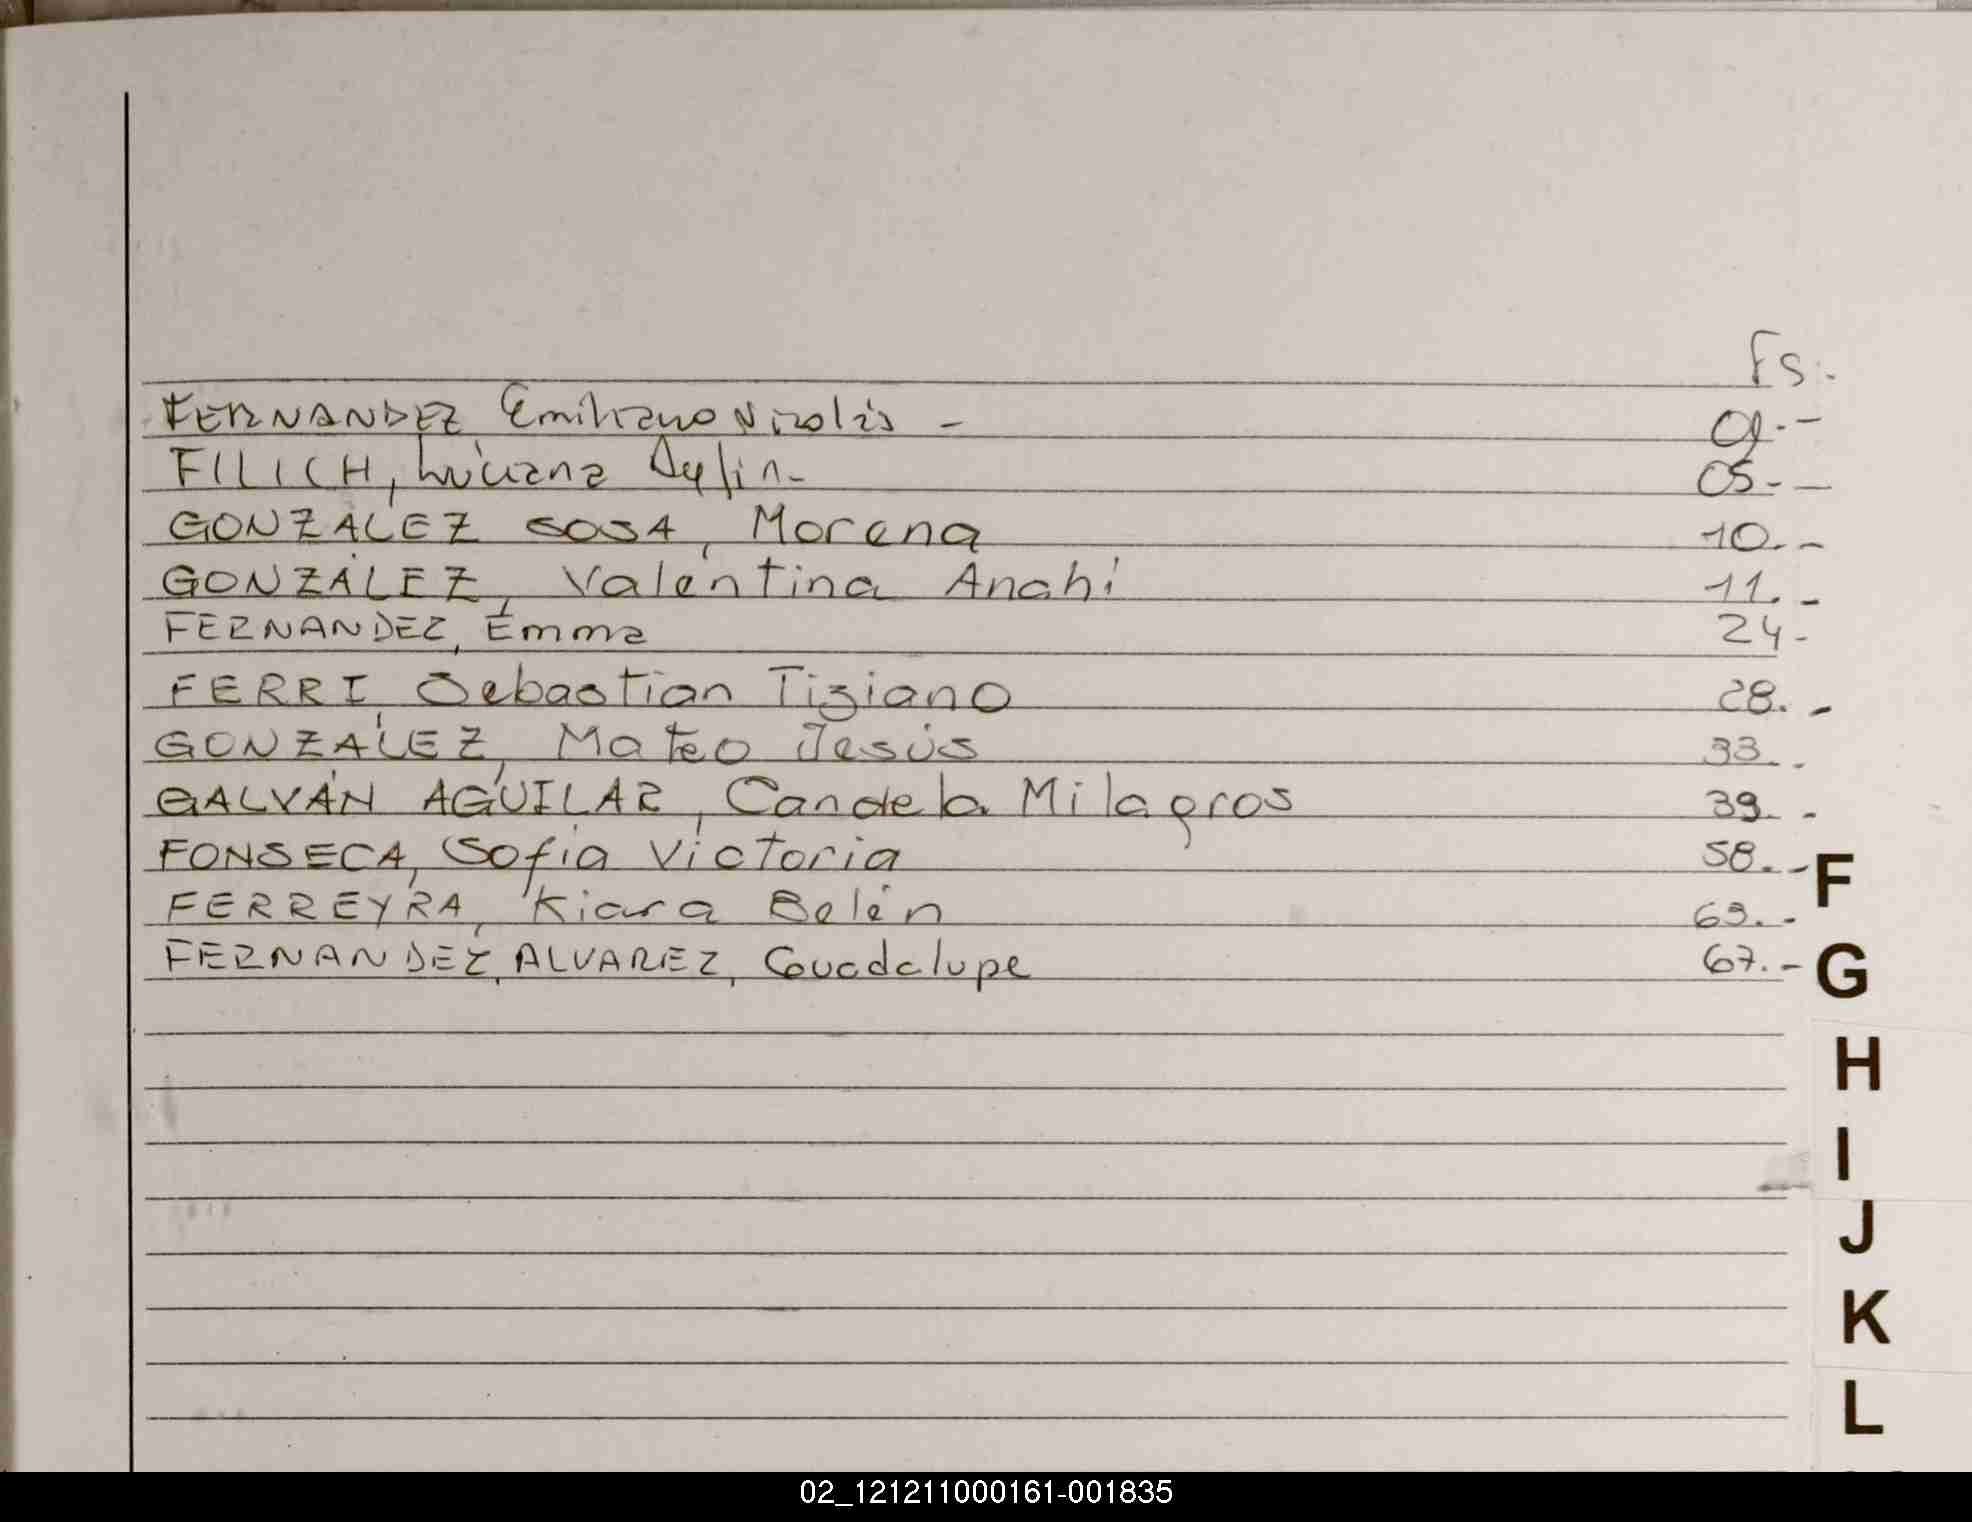 Fs.
FERNANDEZ Emiliano Nicolás - 01.-
FILICH, Luciana Aylin- 05.-
GONZALEZ SOSA, Morena 10.-
GONZÁLEZ, Valentina Anahí 11.-
FERNANDEZ, Emma 24-
FERRI, Sebastian Tiziano 28.-
GONZALEZ, Mateo Jesús 33.-
GALVÁN AGUILAR, Candela Milagros 39.-
FONSECA, Sofia Victoria 58.-
FERREYRA, Kiara Belén 63.-
FERNANDEZ, ALVAREZ, Guadalupe 67.-
F
G
H
I
J
K
L
02_121211000161-001835